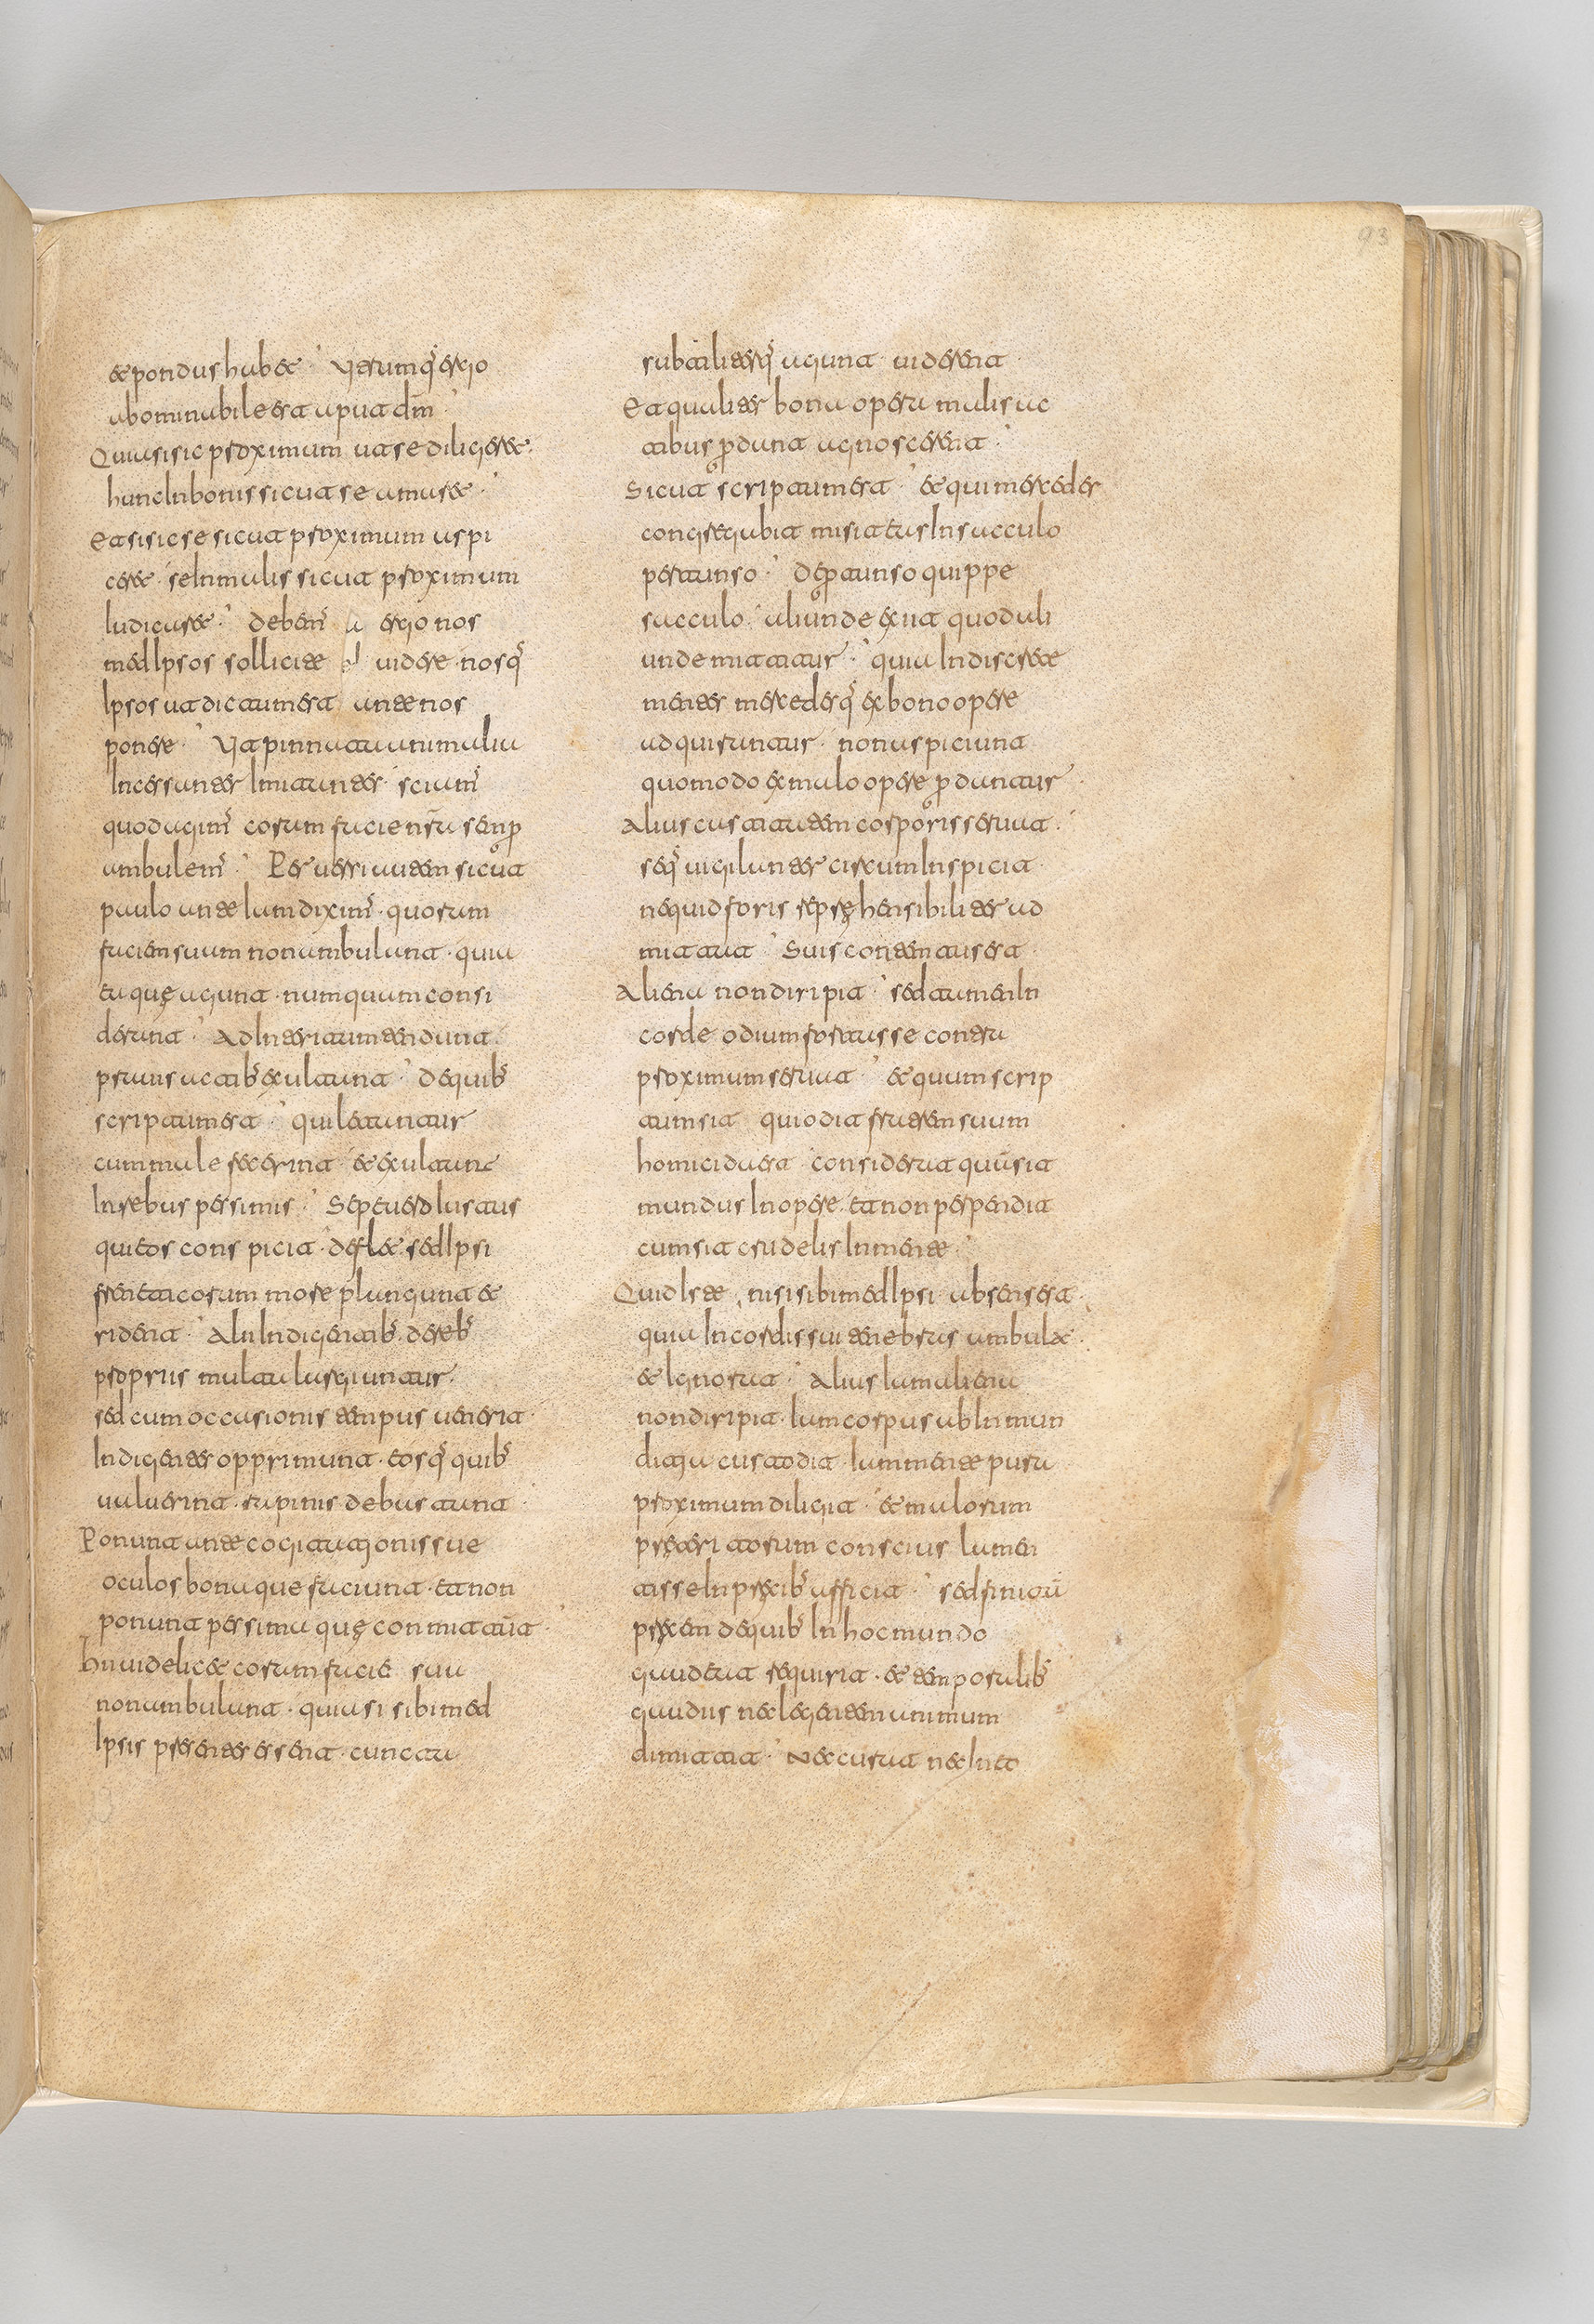 et pondus habet · Utrumq' ergo
abominabile est aput dm̄
Quia si sic proximum ut se diligeret
hunc In bonis sicut se amaret ·
Et si sic se sicut proximum aspi
ceret · se In malis sicut proximum
Iudicaret · debem' ergo nos
medIpsos sollicite uidere · nosq'
Ipsos ut dictum est ante nos
ponere · Ut pinnata animalia
Incessanter Imitantes sciam'
quod agim' corum faciem nr̄a semp
ambulem' · Peruersi autem sicut
paulo ante Iam dixim' · quorum
faciem suam non ambulant · quia
ea quę agunt · numquam consi
derant · Ad Interitum tendunt
prauis actib' exultant · de quib'
scriptum est · qui letantur
cum male fecerint · et exultant
In rebus pessimis · Sepe uero Iustus
qui eos conspicit · deflet · sed Ipsi
frenetacorum more plangunt et
rident · Alii Indigentib' dereb'
propriis multa largiuntur ·
sed cum occasionis tempus uenerit ·
Indigentes opprimunt · eosq' quib'
ualuerint · rapinis debastant ·
Ponunt ante cogitationis sue
oculos bona que faciunt · et non
ponunt pessima quę conmittūt ·
hii uidelicet corum facie sua
non ambulant · quia si sibimed
Ipsis presentes essent · cuncta
subtiliterq' agunt uiderent ·
Et qualiter bona opera malis ac
tibus p̄dunt agnoscerent ·
Sicut scriptum est · et qui mercedes
congregabit misit eas In sacculo
pertunso · de p̄tunso quippe
sacculo · aliunde exiit quod ali
unde mittitur · quia Indiscrete
mentes mercedesq' ex bono opere
adquiruntur · non aspiciunt
quomodo ex malo opere p̄duntur ·
Alius castitatem corporis seruat ·
seq' uigilanter circumInspicit ·
ne quid foris reprehensibiliter ad
mittat · Suis contentus est
Aliena non diripit · sed tamen In
corde odium fortasse contra
proximum seruat · et quum scrip
tum sit qui odit fratrem suum
homicida est · considerat quam sit
mundus In opere · et non perpendit
cum sit crudelis In mente ·
Quid Iste · nisi sibimedIpsi absens est ·
quia In cordis sui tenebris ambulat ·
et Ignorat · Alius Iam aliena
non diripit · Iam corpus ab Inmun
ditia custodit · Iam mente pura
proximum diligit · et malorum
preteritorum conscius lamen
tis se In precib' afficit · sed finita
precem de quib' In hoc mundo
gaudeat requirit · et temporalib'
gaudiis neclegentem animum
dimittit · Nec curat nec Ineo
93